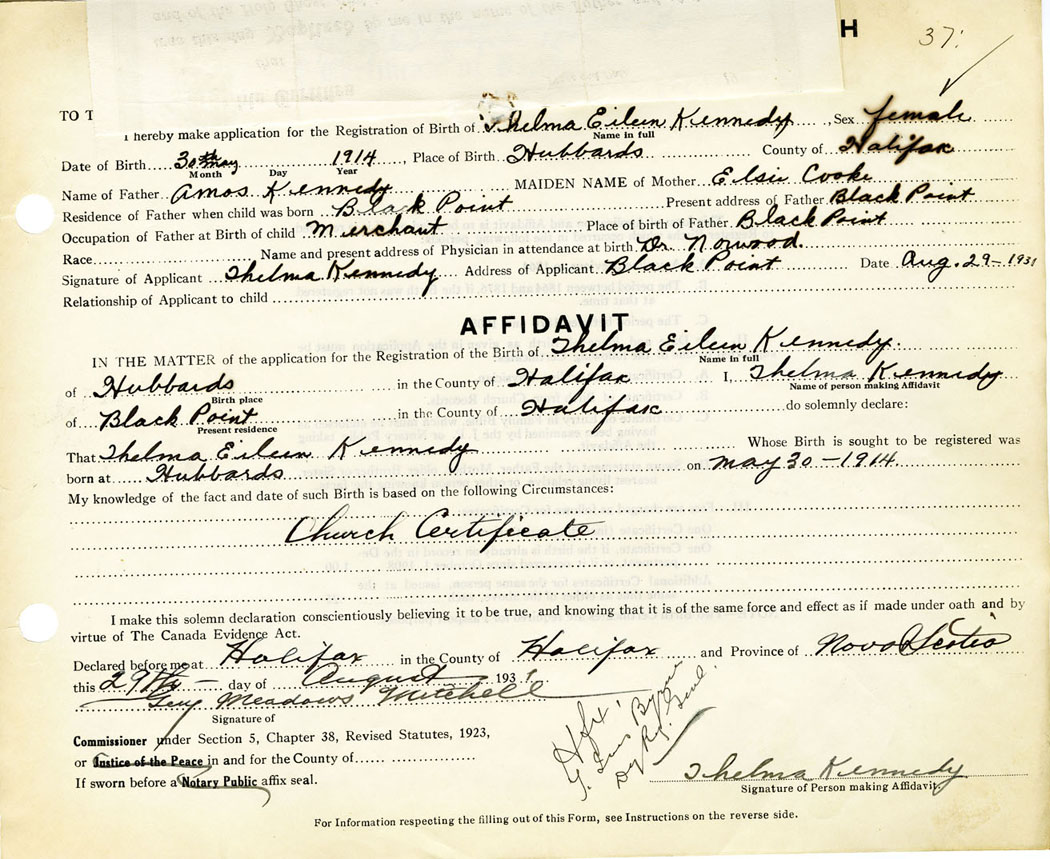 H
37.
TO T
I hereby make application for the Registration of Birth of Thelma Eileen Kennedy, Sex female
Name in full
Date of Birth 30th May 1914, Place of Birth Hubbards County of Halifax
Month Day Year
Name of Father Amos Kennedy MAIDEN NAME of Mother Elsie Cooke
Residence of Father when child was born Black Point Present address of Father Black Point
Occupation of Father at Birth of child Merchant Place of birth of Father Black Point
Race Name and present address of Physician in attendance at birth Dr. Norwood.
Signature of Applicant Thelma Kennedy Address of Applicant Black Point Date Aug. 29-1931
Relationship of Applicant to child
AFFIDAVIT
IN THE MATTER of the application for the Registration of the Birth of Thelma Eileen Kennedy.
Name in full
of Hubbards in the County of Halifax I, Thelma Kennedy
Birth place Name of person making Affidavit
of Black Point in the County of Halifax do solemnly declare:
Present residence
That Thelma Eileen Kennedy Whose Birth is sought to be registered was
born at Hubbards on May 30-1914
My knowledge of the fact and date of such Birth is based on the following Circumstances:
Church Certificate
I make this solemn declaration conscientiously believing it to be true, and knowing that it is of the same force and effect as if made under oath and by
virtue of The Canada Evidence Act.
Declared before me at Halifax in the County of Halifax and Province of Nova Scotia
this 29th day of August 1931
Guy Meadows Mitchell
Signature of
Commissioner under Section 5, Chapter 38, Revised Statutes, 1923,
or Justice of the Peace in and for the County of
If sworn before a Notary Public affix seal.
Hfx
Dy Reg. Genl.
Thelma Kennedy
Signature of Person making Affidavit.
For Information respecting the filling out of this Form, see Instructions on the reverse side.